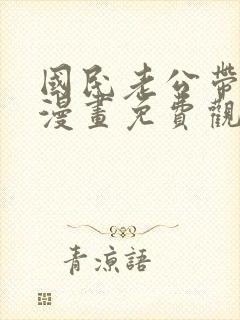 國民老公帶
漫畫免費觀
青涼語